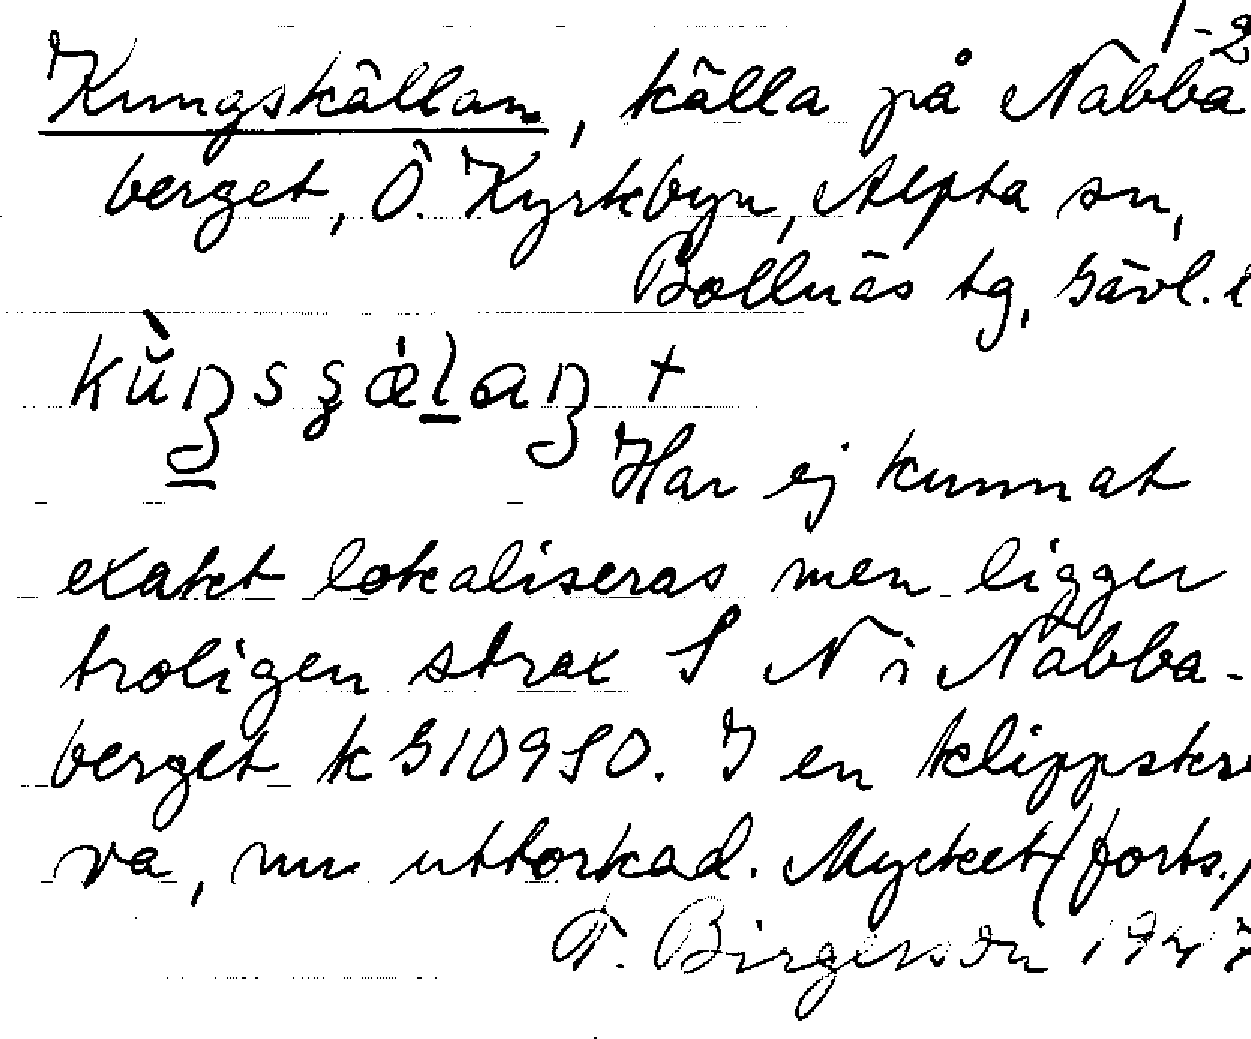 1-2
Kungskällan, källa på Nabba
berget, Ö. Kyrkbyn, Alfta sn,
Bollnäs tg, Gävl. l
Har ej kunnat
exakt lokaliseras men ligger
troligen strax S N i Nabba-
berget k G10950. I en klippskre
va, nu uttorkad. Mycket (forts.)
F. Birgersson 1947